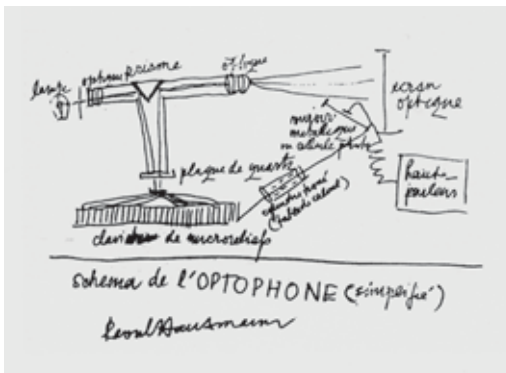 lampe
optique prisme
optique
ecran
optique
miroir
metallique
ou cellule photo
plaque de quartz
cylindre troué
haut-
parleurs
clavier de microreliefs
schema de l'OPTOPHONE (simplifié)
Raoul Hausmann